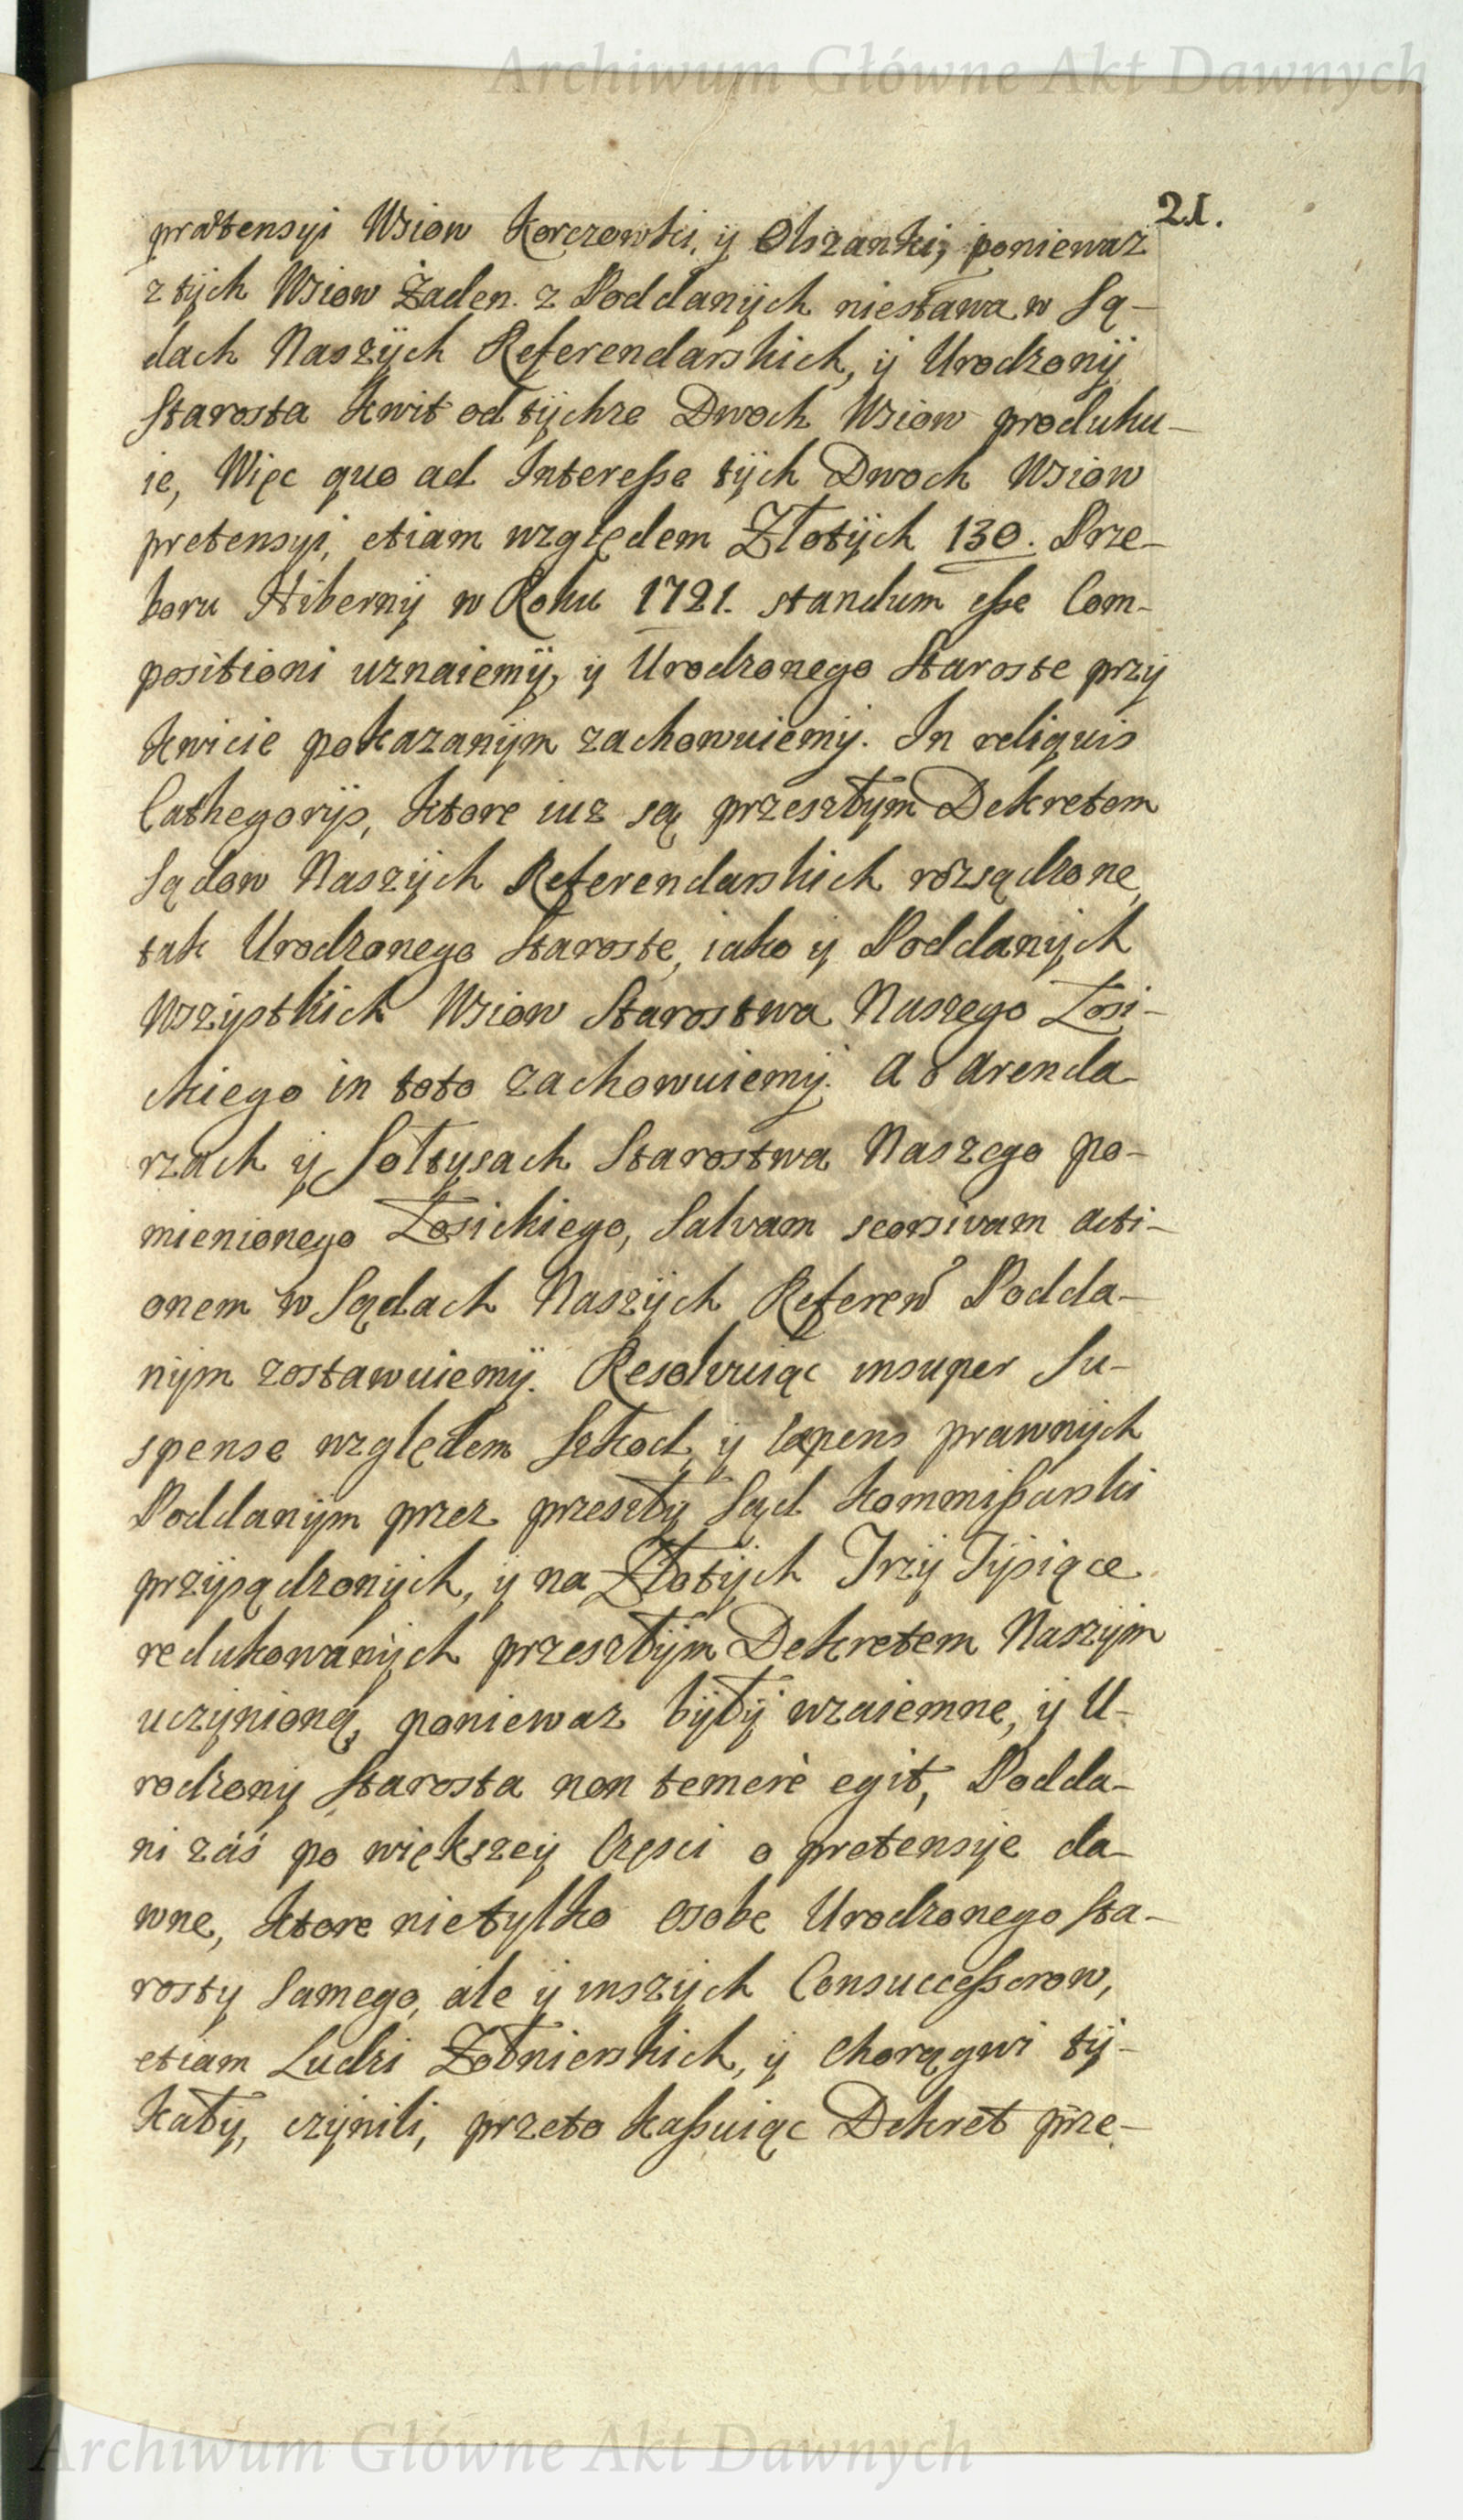 Archiwum Główne Akt Dawnych
21.
prætensyi Wsiow Korczowki, y Olszanki, poniewaz
z tÿch Wsiow Żaden z Poddanÿch niestawa w Są-
dach Naszÿch Referendarskich, ÿ Urodzonÿ
Starosta Kwit od tÿchze Dwoch Wsiow produku-
ie, Więc quo ad Interesse tÿch Dwoch Wsiow
pretensyi, etiam względem Złotÿch 130. Prze-
boru Hibernÿ w Roku 1721. standum esse Com-
positioni uznaiemÿ, y Urodzonego Staroste przy
Kwicie pokazanÿm zachowuiemÿ. In reliquis
Cathegorÿs, Ktore iuz są przeszłym Dekretem
Sądow Naszÿch Referendarskich rozsądzone,
tak Urodzonego Staroste, iako y Poddanÿch
Wszÿstkich Wsiow Starostwa Naszego Łosi-
ckiego in toto zachowuiemÿ. A o Arenda-
rzach ÿ Sołtysach Starostwa Naszego po-
mienionego Łosickiego, Salvam seorsivam acti-
onem w Sądach Naszÿch Referen Podda-
nÿm zostawuiemÿ. Resolvuiąc insuper Su-
spense względem Szkod y Expens prawnÿch
Poddanÿm przez przeszłÿ Sąd Kommissarski
przÿsądzonÿch, ÿ na Złotÿch Trzÿ Tÿsiące
redukowanÿch przeszłÿm Dekretem Naszÿm
uczynioną, poniewaz bÿłÿ wzaiemne, ÿ U-
rodzony Starosta non temerè egit, Podda-
ni záś po większey Częsci o pretensÿe da-
wne, Ktore nietylko osobe Urodzonego Sta-
rosty Samego, ale ÿ inszÿch Consuccessorow,
etiam Ludzi Żołnierskich, ÿ Chorągwi tÿ-
Kałÿ, czÿnili, przeto Kassuiąc Dekret prze-
Archiwum Główne Akt Dawnych